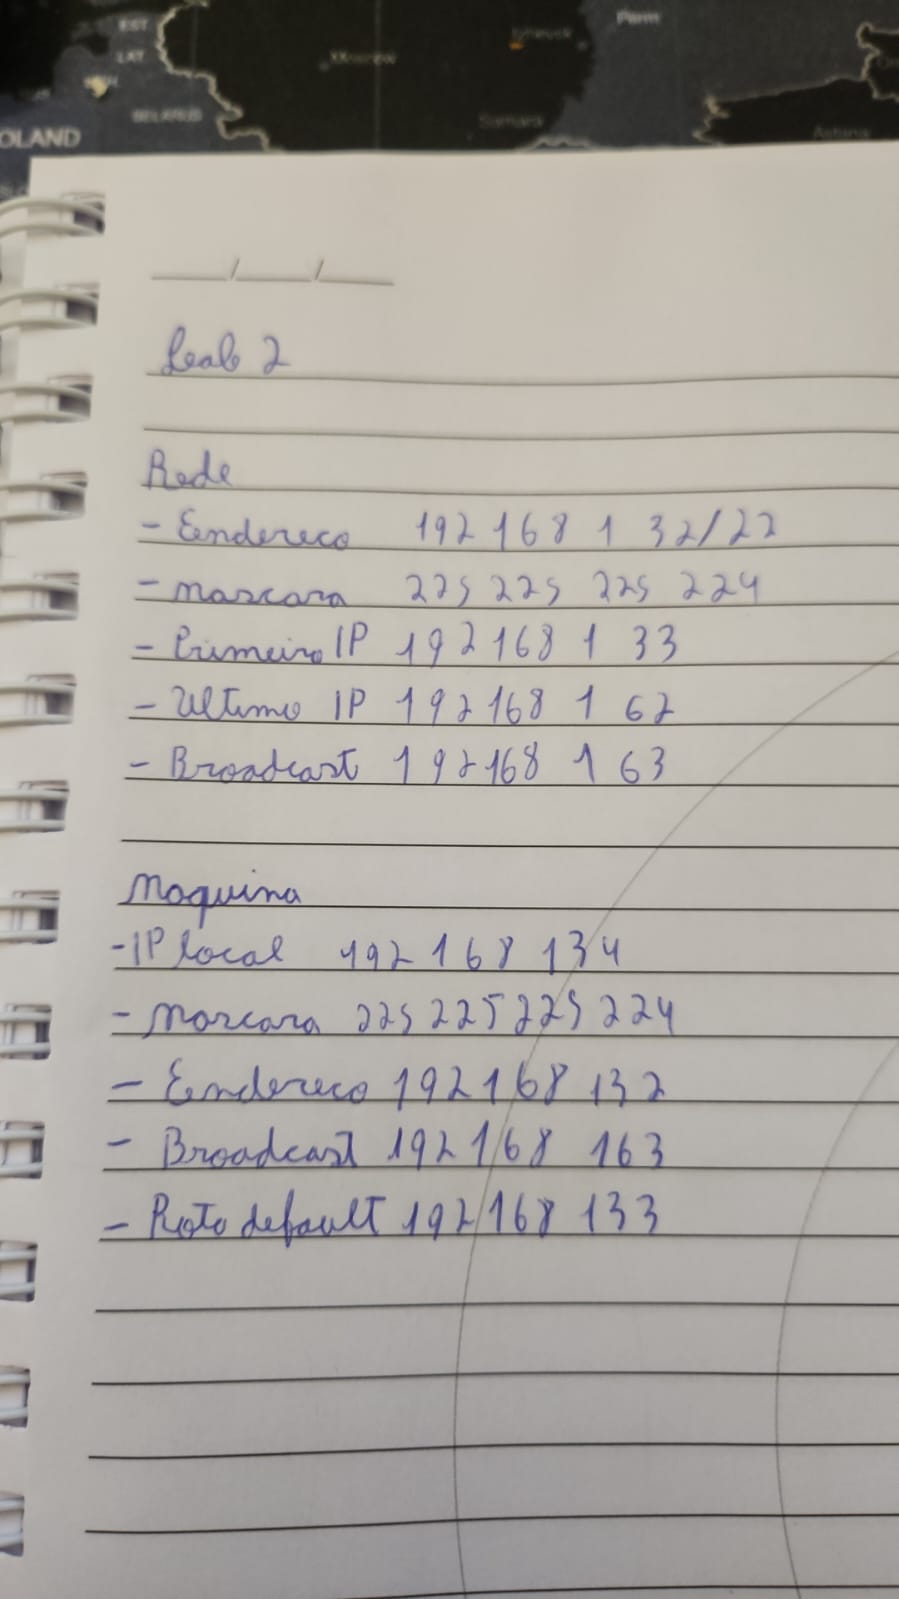 EST
LAT
Perm
Moscow
BELARUS
Samara
OLAND
Astana
/ /
Leab 2
Rede
- Eendereco 192 168 1 32/27
- mascara 225 225 225 224
- Primeiro IP 192 168 1 33
- Ultimo IP 192 168 1 62
- Broadcast 192 168 1 63
Maquina
- IP local 192 168 1 34
- Marcara 225 225 225 224
- Eendereco 192 168 1 32
- Broadcast 192 168 1 63
- Roto default 192 168 1 33